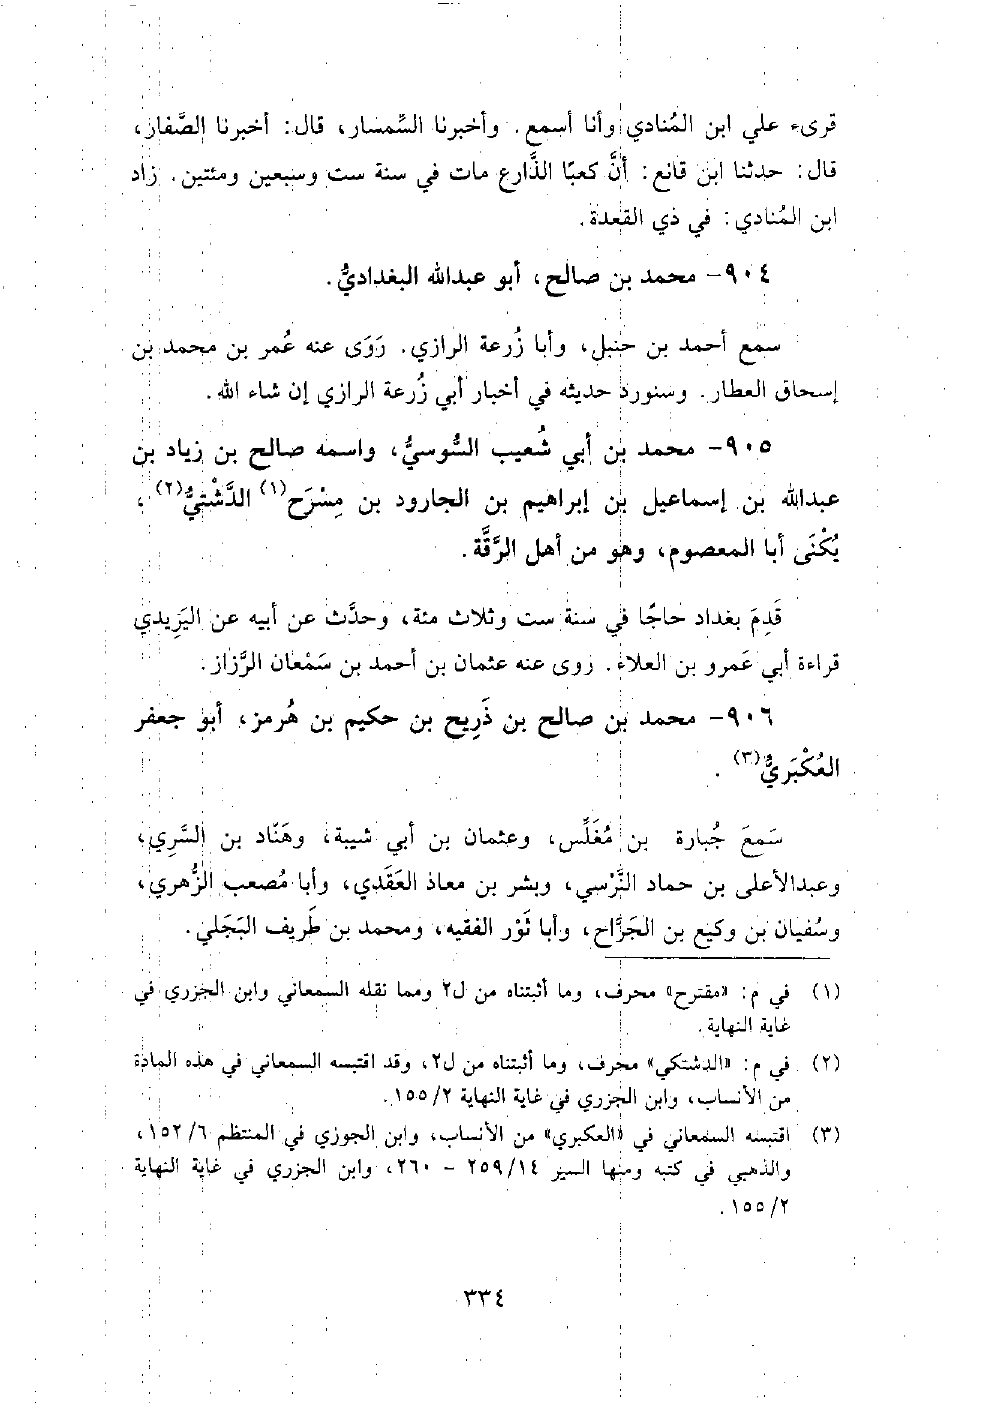 قرىء علي ابن المُنادي وأنا أسمع. وأخبرنا السِّمسار، قال: أخبرنا الصَّفار،
قال: حدثنا ابن قانع: أنَّ كعبًا الذَّارع مات في سنة ست وسبعين ومئتين. زاد
ابن المُنادي: في ذي القعدة.
٩٠٤- محمد بن صالح، أبو عبدالله البغداديُّ.
سمع أحمد بن حنبل، وأبا زُرعة الرازي. رَوَى عنه عُمر بن محمد بن
إسحاق العطار. وسنورد حديثه في أخبار أبي زُرعة الرازي إن شاء الله.
٩٠٥- محمد بن أبي شُعيب السُّوسيُّ، واسمه صالح بن زياد بن
عبدالله بن إسماعيل بن إبراهيم بن الجارود بن مِسْرَح(١) الدَّشْتيُّ(٢)،
يُكْنَى أبا المعصوم، وهو من أهل الرَّقَّة.
قَدِمَ بغداد حاجًا في سنة ست وثلاث مئة، وحدَّث عن أبيه عن اليَزِيدي
قراءة أبي عَمرو بن العلاء. روى عنه عثمان بن أحمد بن سَمْعان الرَّزاز.
٩٠٦- محمد بن صالح بن ذَرِيح بن حكيم بن هُرمز، أبو جعفر
العُكْبَريُّ(٣).
سَمعَ جُبارة بن مُغَلِّس، وعثمان بن أبي شيبة، وهَنّاد بن السَّري،
وعبدالأعلى بن حماد النَّرْسي، وبشر بن معاذ العَقَدي، وأبا مُصعب الزُّهري،
وسُفيان بن وكيع بن الجَرَّاح، وأبا ثَوْر الفقيه، ومحمد بن طَريف البَجَلي.
(١) في م: «مقترح» محرف، وما أثبتناه من ل٢ ومما نقله السمعاني وابن الجزري في
غاية النهاية.
(٢) في م: «الدشتكي» محرف، وما أثبتناه من ل٢، وقد اقتبسه السمعاني في هذه المادة
من الأنساب، وابن الجزري في غاية النهاية ٢/ ١٥٥.
(٣) اقتبسه السمعاني في «العكبري» من الأنساب، وابن الجوزي في المنتظم ٦/ ١٥٢،
والذهبي في كتبه ومنها السير ١٤/ ٢٥٩ - ٢٦٠، وابن الجزري في غاية النهاية
٢/ ١٥٥.
٣٣٤